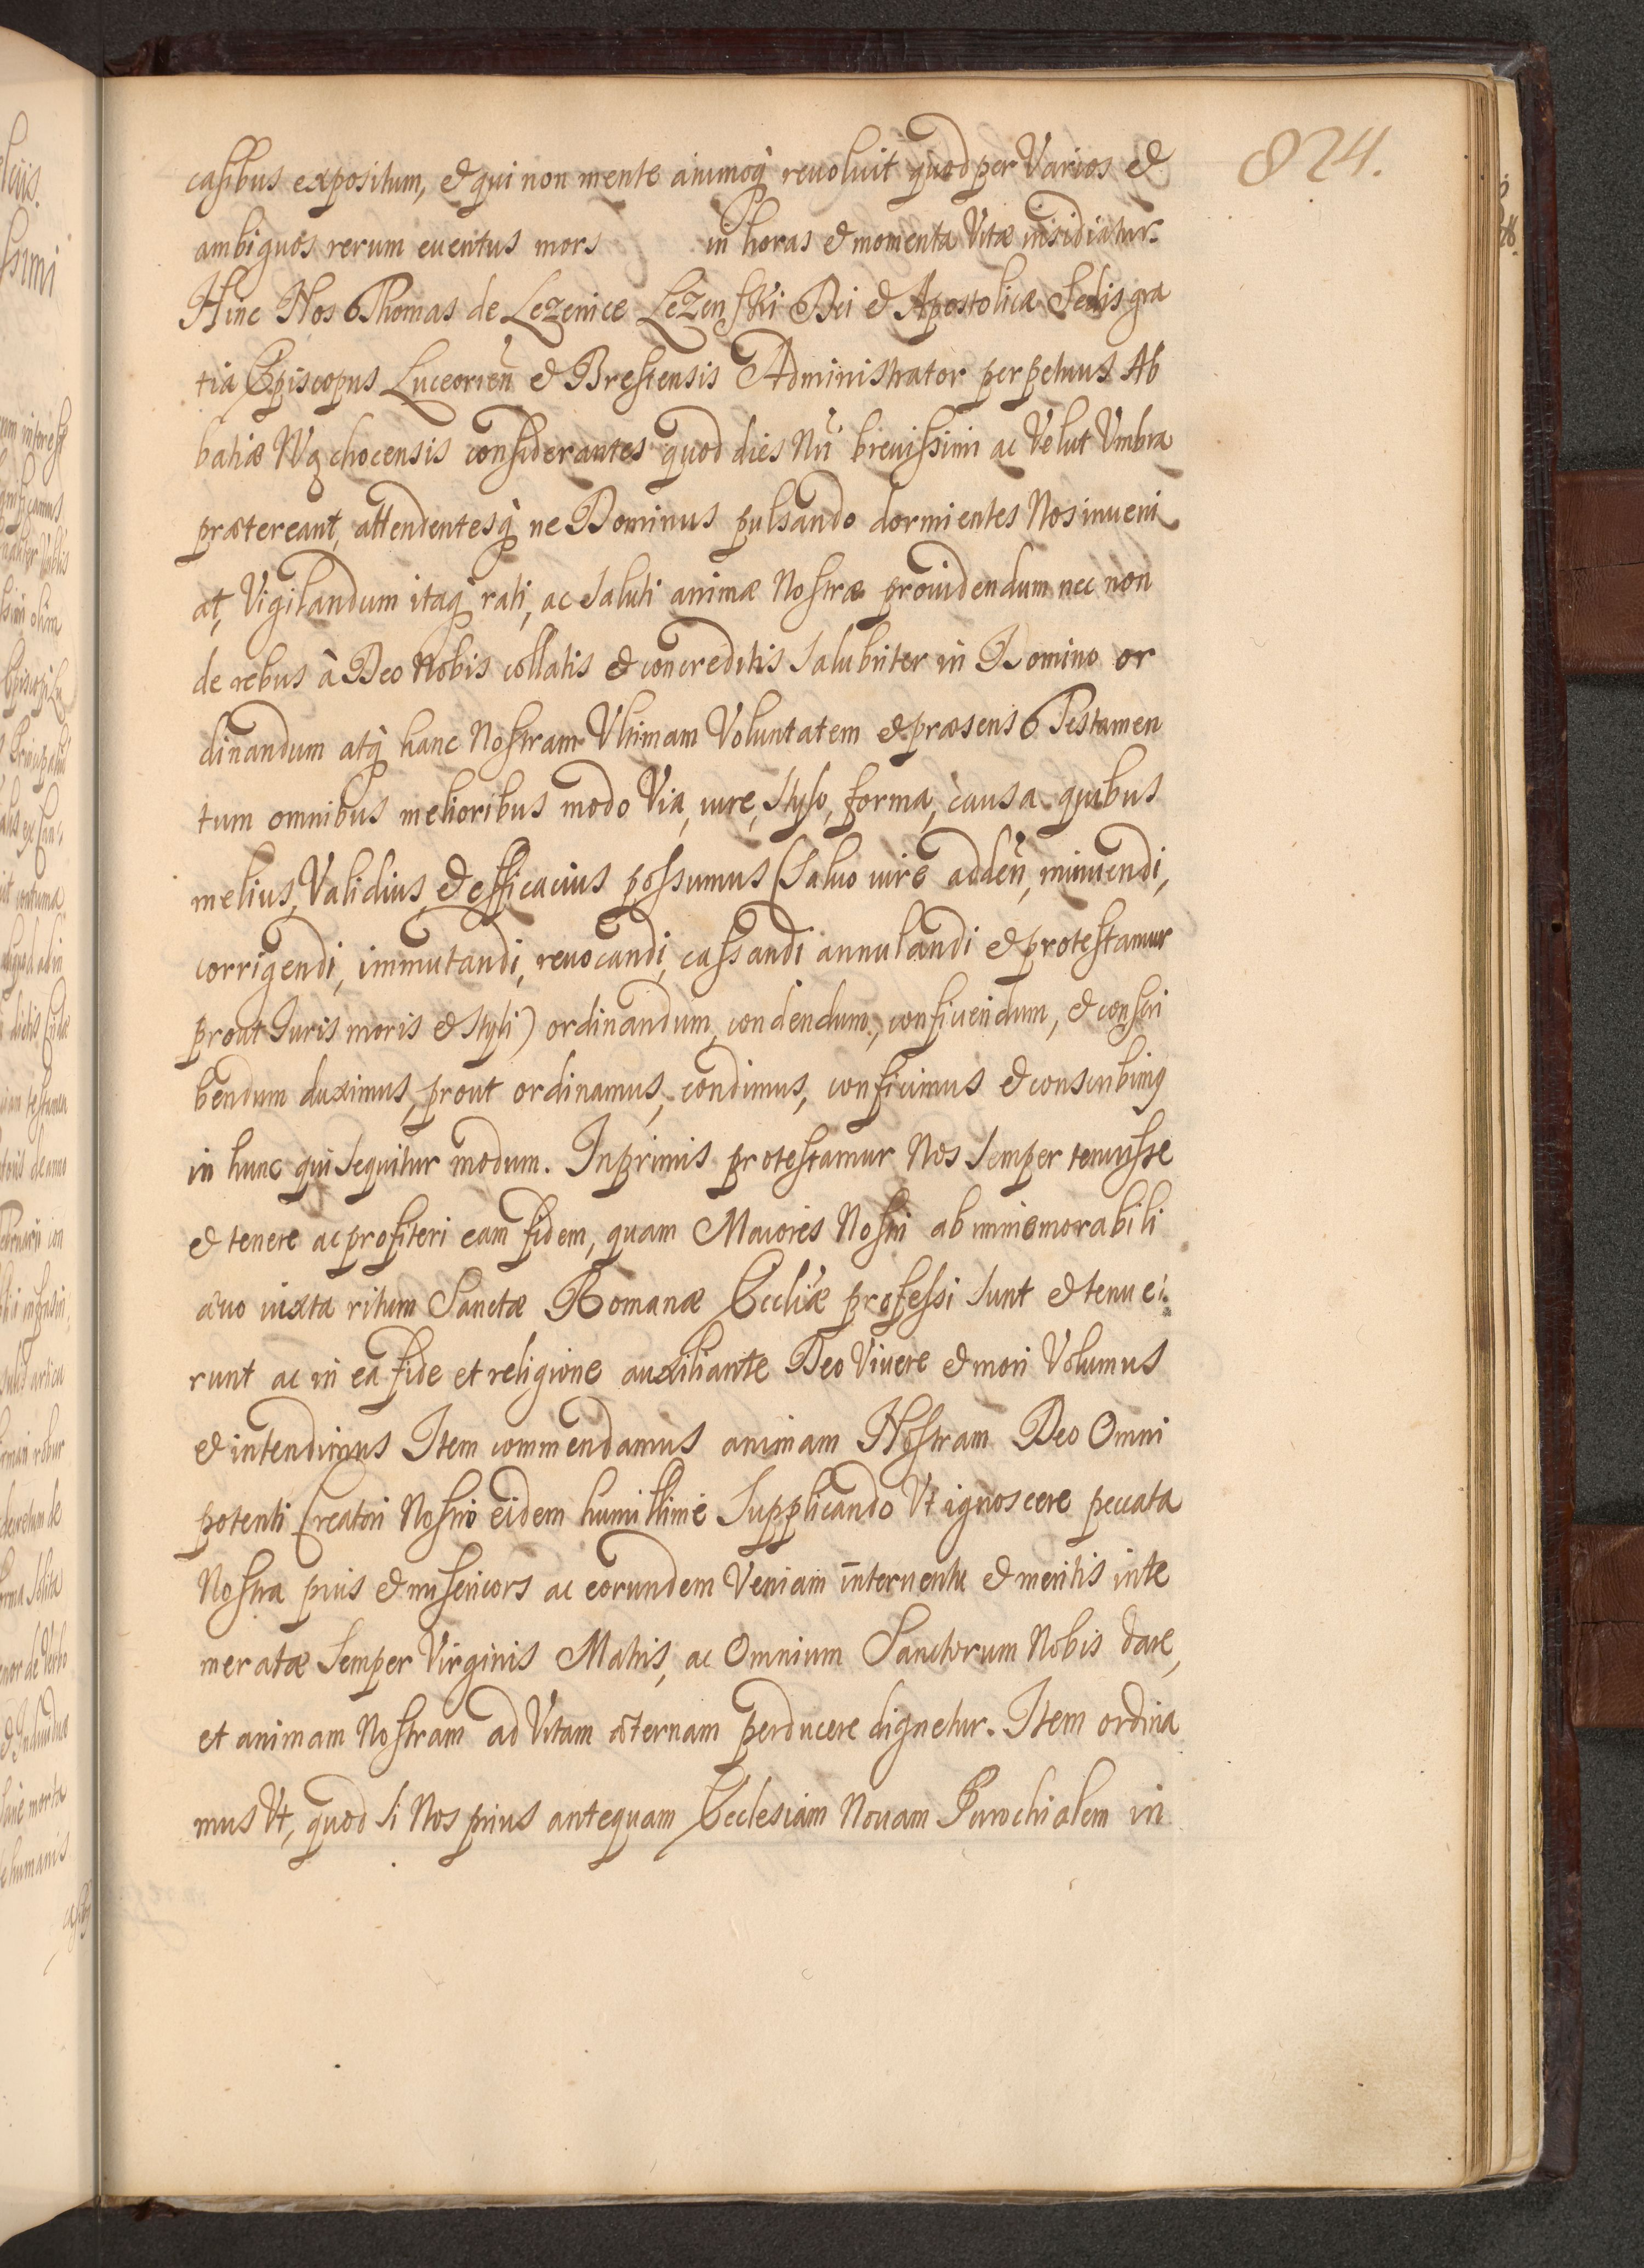 824.
casibus expositum, & qui non mente animoq̀ revoluit quod per Varios &
ambiguos rerum euentus mors in horas & momenta Vitæ insidiatur.
Hinc Nos Thomas de Lezenice LeZenski Dei & Apostolicæ Sedis gra
tia Episcopus Luceorieñ & Brestensis Administrator perpetuus Ab
batiæ Wąchocensis considerantes quod dies Nri breuissimi ac Velut Vmbra
prætereant, attendentesq̀ ne Dominus pulsando dormientes Nos inueni
at, Vigilandum itaq̀ rati, ac Saluti animæ Nostræ prouidendum nec non
de rebus à Deo Nobis collatis & concreditis Salubriter in Domino or
dinandum atq̀ hanc Nostram Vltimam Voluntatem & præsens Testamen
tum omnibus melioribus modo Via, iure, Stylo, forma, causa quibus
melius, Validius, & efficacius possumus (Saluo iure addeñ, minuendi,
corrigendi, immutandi, reuocandi, cassandi annulandi & protestamur
prout Iuris moris & Styli) ordinandum, condendum, conficiendum, & conscri
bendum duximus, prout ordinamus, condimus, conficimus & conscribimq
in hunc qui Sequitur modum. Inprimis protestamur Nos Semper tenuisse
& tenere ac profiteri eam fidem, quam Maiores Nostri ab immemorabili
æuo iuxta ritum Sanctæ Romanæ Eccliæ professi Sunt & tenue:
runt ac in ea fide et religione auxiliante Deo Viuere & mori Volumus
& intendimus Item commendamus animam Nostram Deo Omni
potenti Creatori Nostro eidem humillimè Supplicando Vt ignoscere peccata
Nostra pius & misericors ac eorundem Veniam interuentu & meritis inte
meratæ Semper Virginis Matris, ac Omnium Sanctorum Nobis dare,
et animam Nostram ad Vitam æternam perducere dignetur. Item ordina
mus Vt, quod Si Nos prius antequam Ecclesiam Nouam Parochialem in